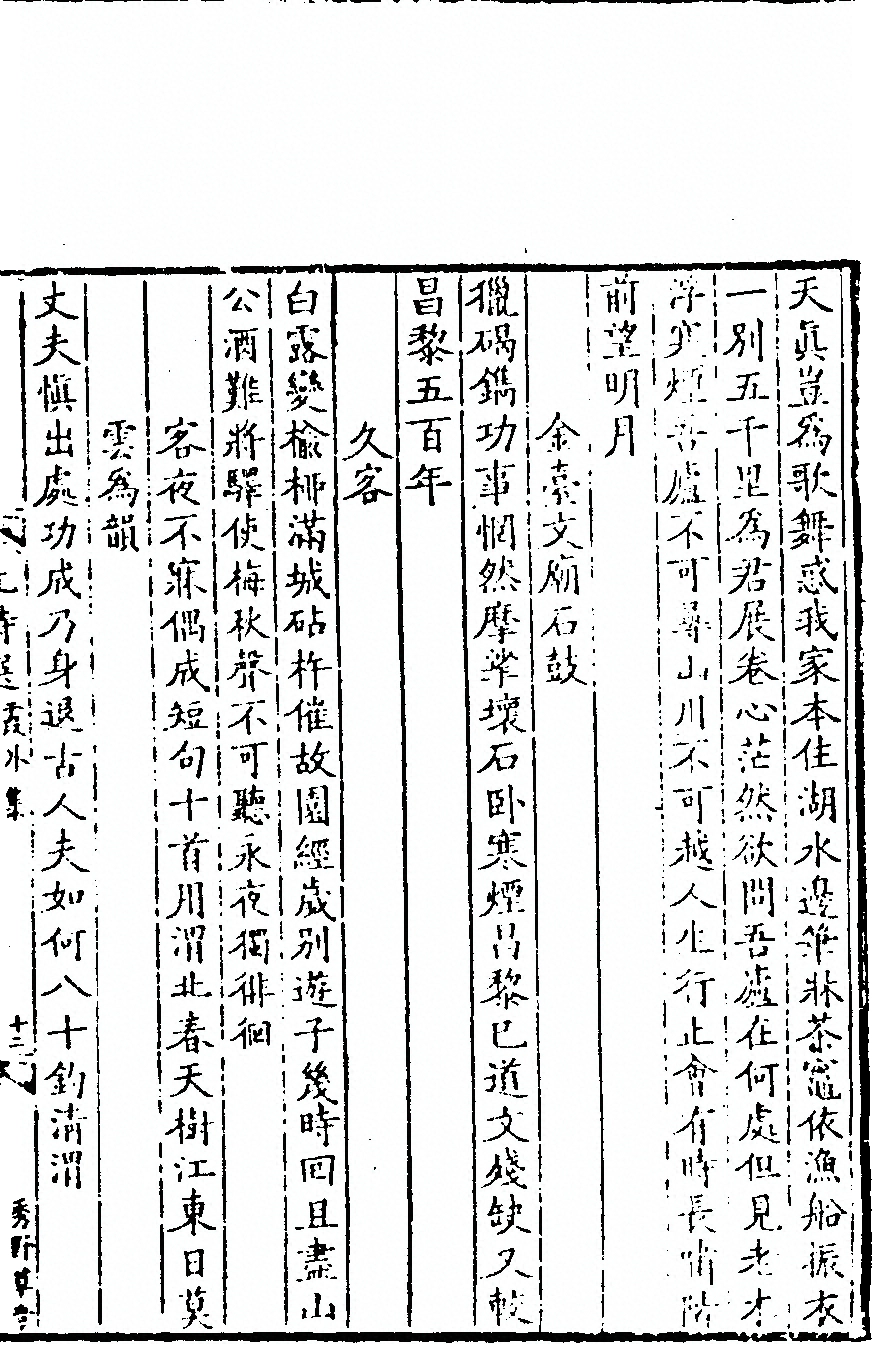 天眞豈爲歌舞惑我家本住湖水邊筆牀茶竈依漁船振衣
一別五千里爲君展卷心茫然欲問吾廬在何處但見老木
浮寒煙吾廬不可尋山川不可越人生行止會有時長嘯階
前望明月
金臺文廟石鼓
獵碣鐫功事惘然摩挲壞石卧寒煙昌黎已道文殘缺又較
昌黎五百年
久客
白露變榆栁滿城砧杵催故園經歲別遊子幾時回且盡山
公酒難將驛使梅秋聲不可聽永夜獨徘徊
客夜不寐偶成短句十首用渭北春天樹江東日莫
雲爲韻
丈夫慎出處功成乃身退古人夫如何八十釣清渭
元詩選 霞外集
十三
秀野草堂